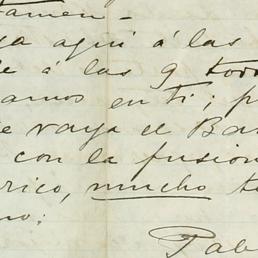 tamen_
sa aquí á las
e á las 9 tod
amos en ti; p
e vaya el Ba
con la fusion
rico, mucho t
no:
Pab